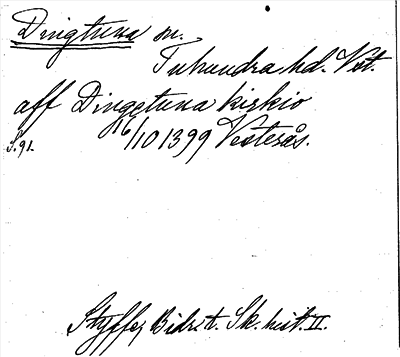 Dingtuna sn.
Tuhundra hd. Vst.
aff Dinggtuna kirkio
16/10 1399 Vesterås.
S. 91.
Styffe, Bidr. t. Sk. hist. II.